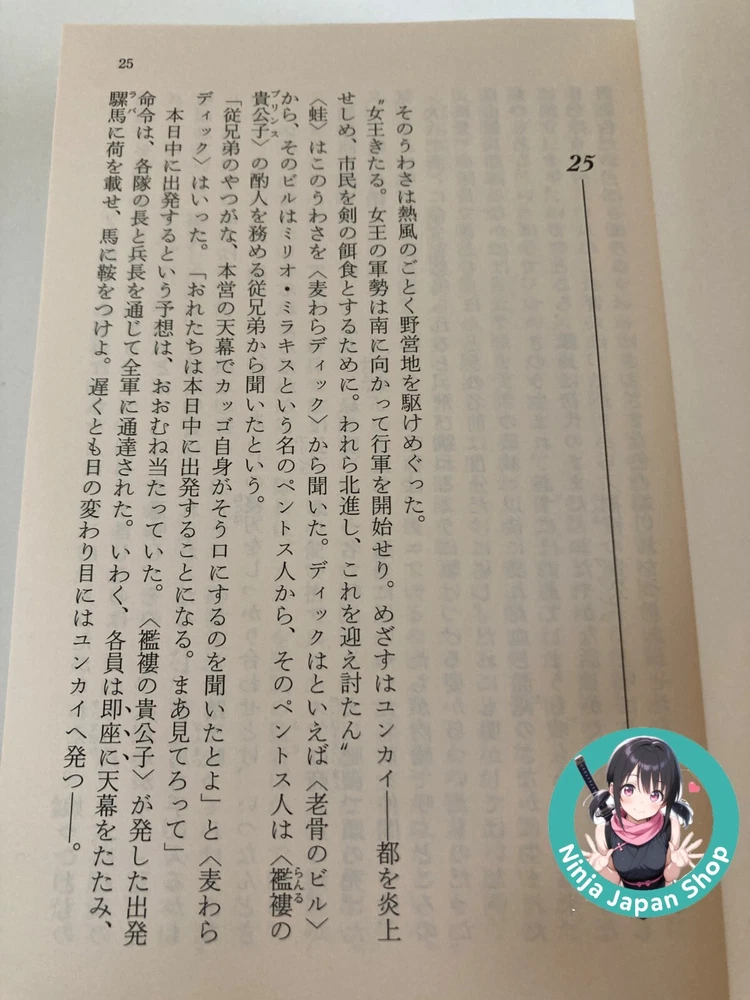 25
25
そのうわさは熱風のごとく野営地を駆けめぐった。
〝女王きたる。女王の軍勢は南に向かって行軍を開始せり。めざすはユンカイ――都を炎上
せしめ、市民を剣の餌食とするために。われら北進し、これを迎え討たん〟
〈蛙〉はこのうわさを〈麦わらディック〉から聞いた。ディックはといえば〈老骨のビル〉
から、そのビルはミリオ・ミラキスという名のペントス人から、そのペントス人は〈襤褸の
貴公子〉の酌人を務める従兄弟から聞いたという。
「従兄弟のやつがな、本営の天幕でカッゴ自身がそう口にするのを聞いたとよ」と〈麦わら
ディック〉はいった。「おれたちは本日中に出発することになる。まあ見てろって」
本日中に出発するという予想は、おおむね当たっていた。〈襤褸の貴公子〉が発した出発
命令は、各隊の長と兵長を通じて全軍に通達された。いわく、各員は即座に天幕をたたみ、
騾馬に荷を載せ、馬に鞍をつけよ。遅くとも日の変わり目にはユンカイへ発つ――。
らんる
プリンス
ラバ
Ninja Japan Shop